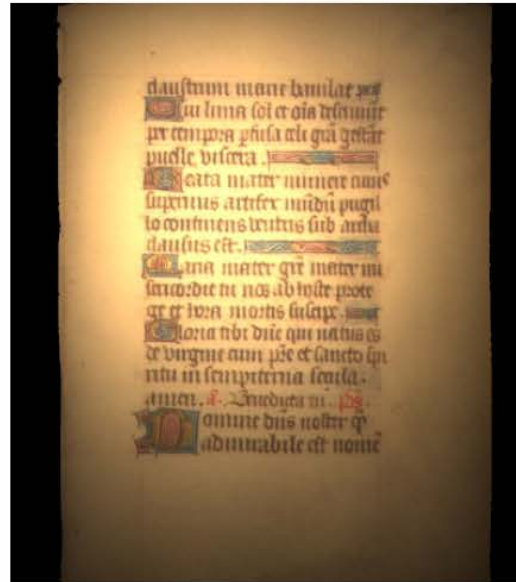 claustrum marie baiulat
Cui luna sol et oīa deseruiūt
per tempora pfusa celi grā gestāt
puelle viscera.
Beata mater munere cuiusꝰ
supernus artifex mūdū pugil
lo continens ventris sub archa
clausus est.
Maria mater grē mater mi
sericordie tu nos ab hoste prote
ge et hora mortis suscipe.
Gloria tibi dñe qui natus es
de virgine cum pr̄e et sancto spi
ritu in sempiterna secula.
amen. a. Benedicta tu. ps.
Domine dñs noster q̄
admirabile est nomē